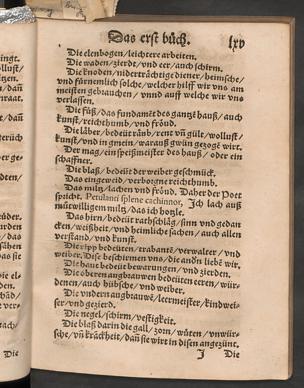 Das erst büch. lxv
Die elenbogen/leichtere arbeiten.
Die waden/zierdt/vnd eer/auch schirm.
Die knoden/niderträchtige diener/heimsche/
vnd fürnemlich solche/welcher hilff wir vns am
meisten gebrauchen/vnnd auff welche wir vns
verlassen.
Die füß/das fundamēt des gantz hauß/auch
kunst/reichthumb/vnd fröud.
Die läber/bedeüt räub/rent vn̄ güle/wollust/
kunst/vnd in gmein/warauß gwün gezogē wirt.
Der mag/ein speißmeister des hauß/oder ein
schaffner.
Die blaß/bedeüt der weiber geschmück.
Das eingeweid/verborgne reichthumb.
Das miltz/lachen vnd fröud. Daher der Poet
spricht. Petulanti splene cachinnor, Ich lach auß
mütwilligem miltz/das ich hotzle.
Das hirn/bedeüt rathschläg/sinn vnd gedan
cken/weißheit/vnd heimliche sachen/auch allen
verstand/vnd kunst.
Die ripp bedeüten/trabantē/verwalter/vnd
weiber. Dise beschirmen vns/die andn̄ liebē wir.
Die haut bedeüt bewarungen/vnd zierden.
Die oberen augbrauwen bedeüten eeren/wür-
denen/auch hübsche/vnd weiber.
Die vndern augbrauwē/leermeister/kindwei-
ser/vnd gezierd.
Die negel/schirm/vestigkeit.
Die blaß darin die gall/zorn/wüten/vnwür-
sche/vn̄ kräckheit/dañ sie wirt in disen angezünt.
J Die